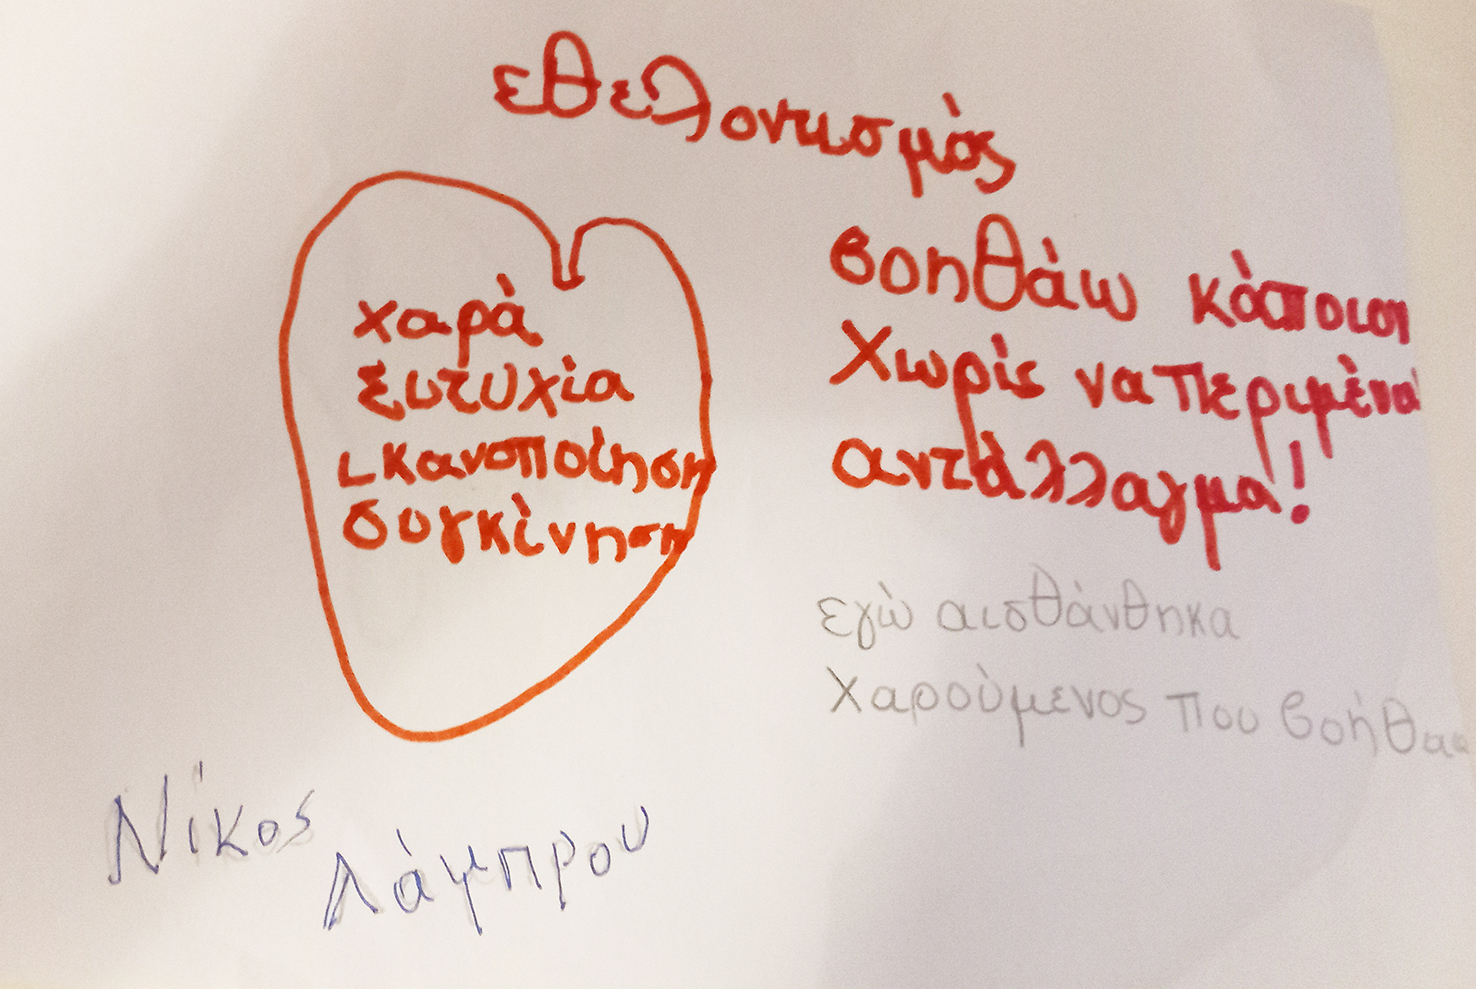 εθελοντισμός
χαρά
ευτυχία
ικανοποίηση
συγκίνηση
βοηθάω κάποιον
χωρίς να περιμένω
αντάλλαγμα!
εγώ αισθάνθηκα
χαρούμενος που
Νίκος
Λάμπρου